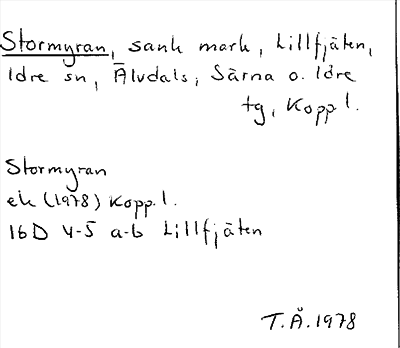 Stormyran, sank mark, Lillfjäten,
Idre sn, Älvdals, Särna o. Idre
tg, Kopp l.
Stormyran
ek (1978) Kopp. l.
16D 4-5 a-b Lillfjäten
T.Å. 1978